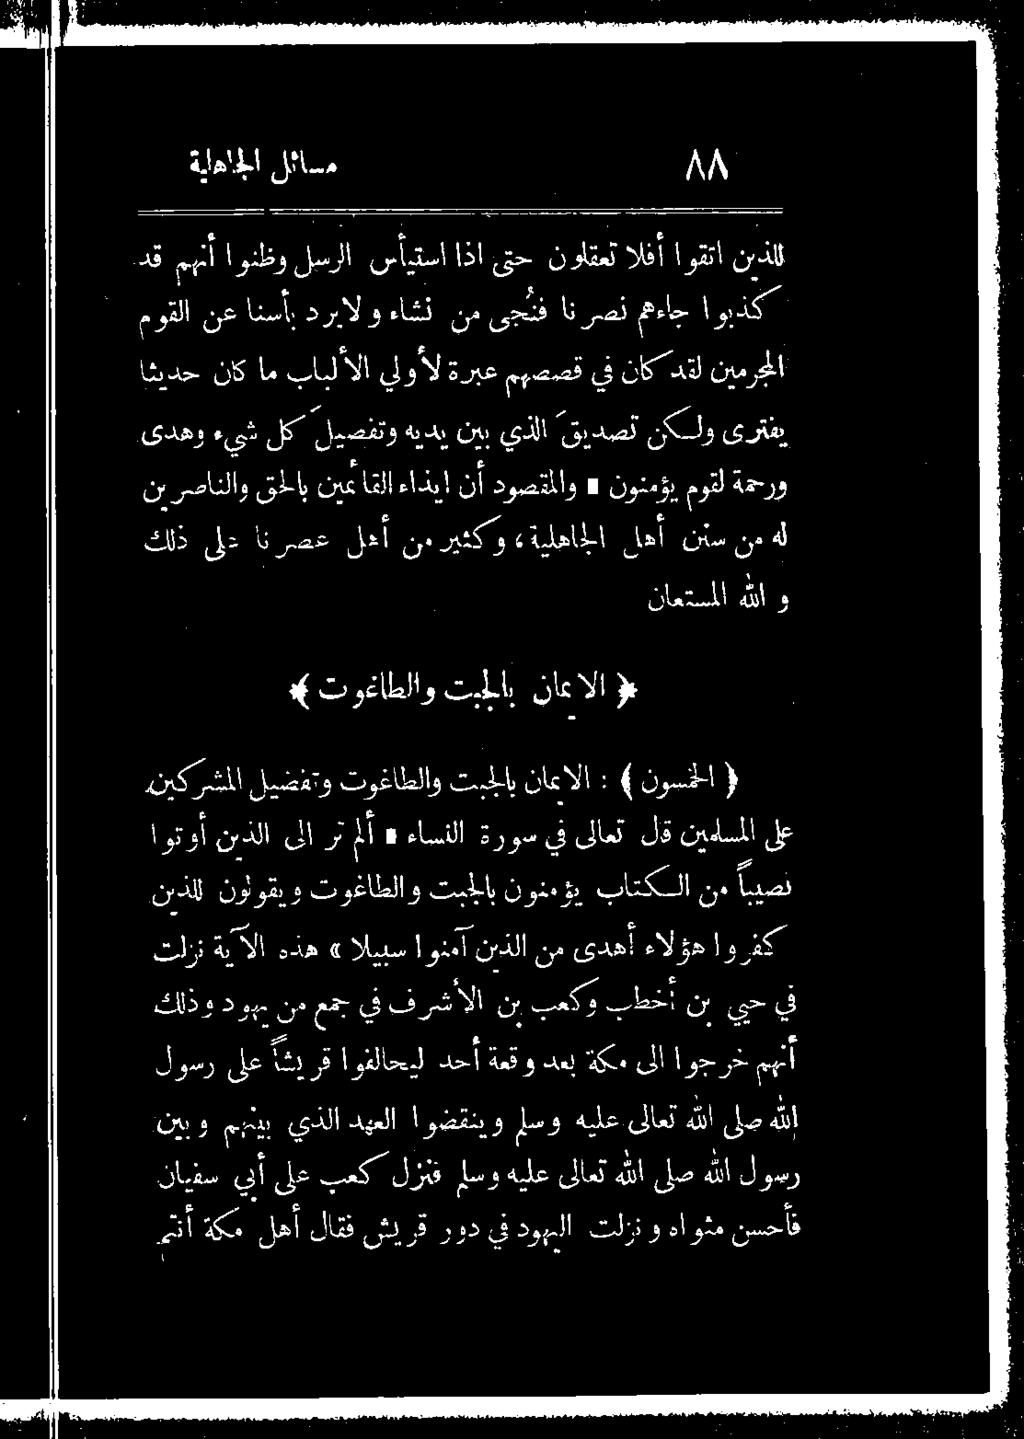 ٨٨ مسائل الجاهلية
للذين اتقوا أفلا تعقلون حتى اذا استيأس الرسل وظنوا أنهم قد
كذبوا جاءهم نصرنا فنُجي من نشاء ولايرد بأسنا عن القوم
المجرمين لقد كان في قصصهم عبرة لأولي الألباب ما كان حديثا
يفترى ولـكن تصديقَ الذي بين يديه وتفصيلَ كل شيء وهدى
ورحمة لقوم يؤمنون ▪ والمقصود أن ايذاء القائمين بالحق والناصرين
له من سنن أهل الجاهلية، وكثير من أهل عصرنا على ذلك
و الله المستعان
﴿ الايمان بالجبت والطاغوت ﴾
﴿ الخمسون ﴾ : الايمان بالجبت والطاغوت وتفضيل المشركين
على المسلمين قل تعالى في سورة النساء ▪ ألم تر الى الذين أوتوا
نصيباً من الـكتاب يؤمنون بالجبت والطاغوت ويقولون للذين
كفروا هؤلاء أهدى من الذين آمنوا سبيلا » هذه الآية نزلت
في حيي بن أخطب وكعب بن الأشرف في جمع من يهود وذلك
أنهم خرجوا الى مكة بعد وقعة أحد ليحالفوا قريشاً على رسول
الله صلى الله تعالى عليه وسلم وينقضوا العهد الذي بينهم وبين
رسول الله صلى الله تعالى عليه وسلم فنزل كعب على أبي سفيان
فأحسن مثواه ونزلت اليهود في دور قريش فقال أهل مكة أنتم